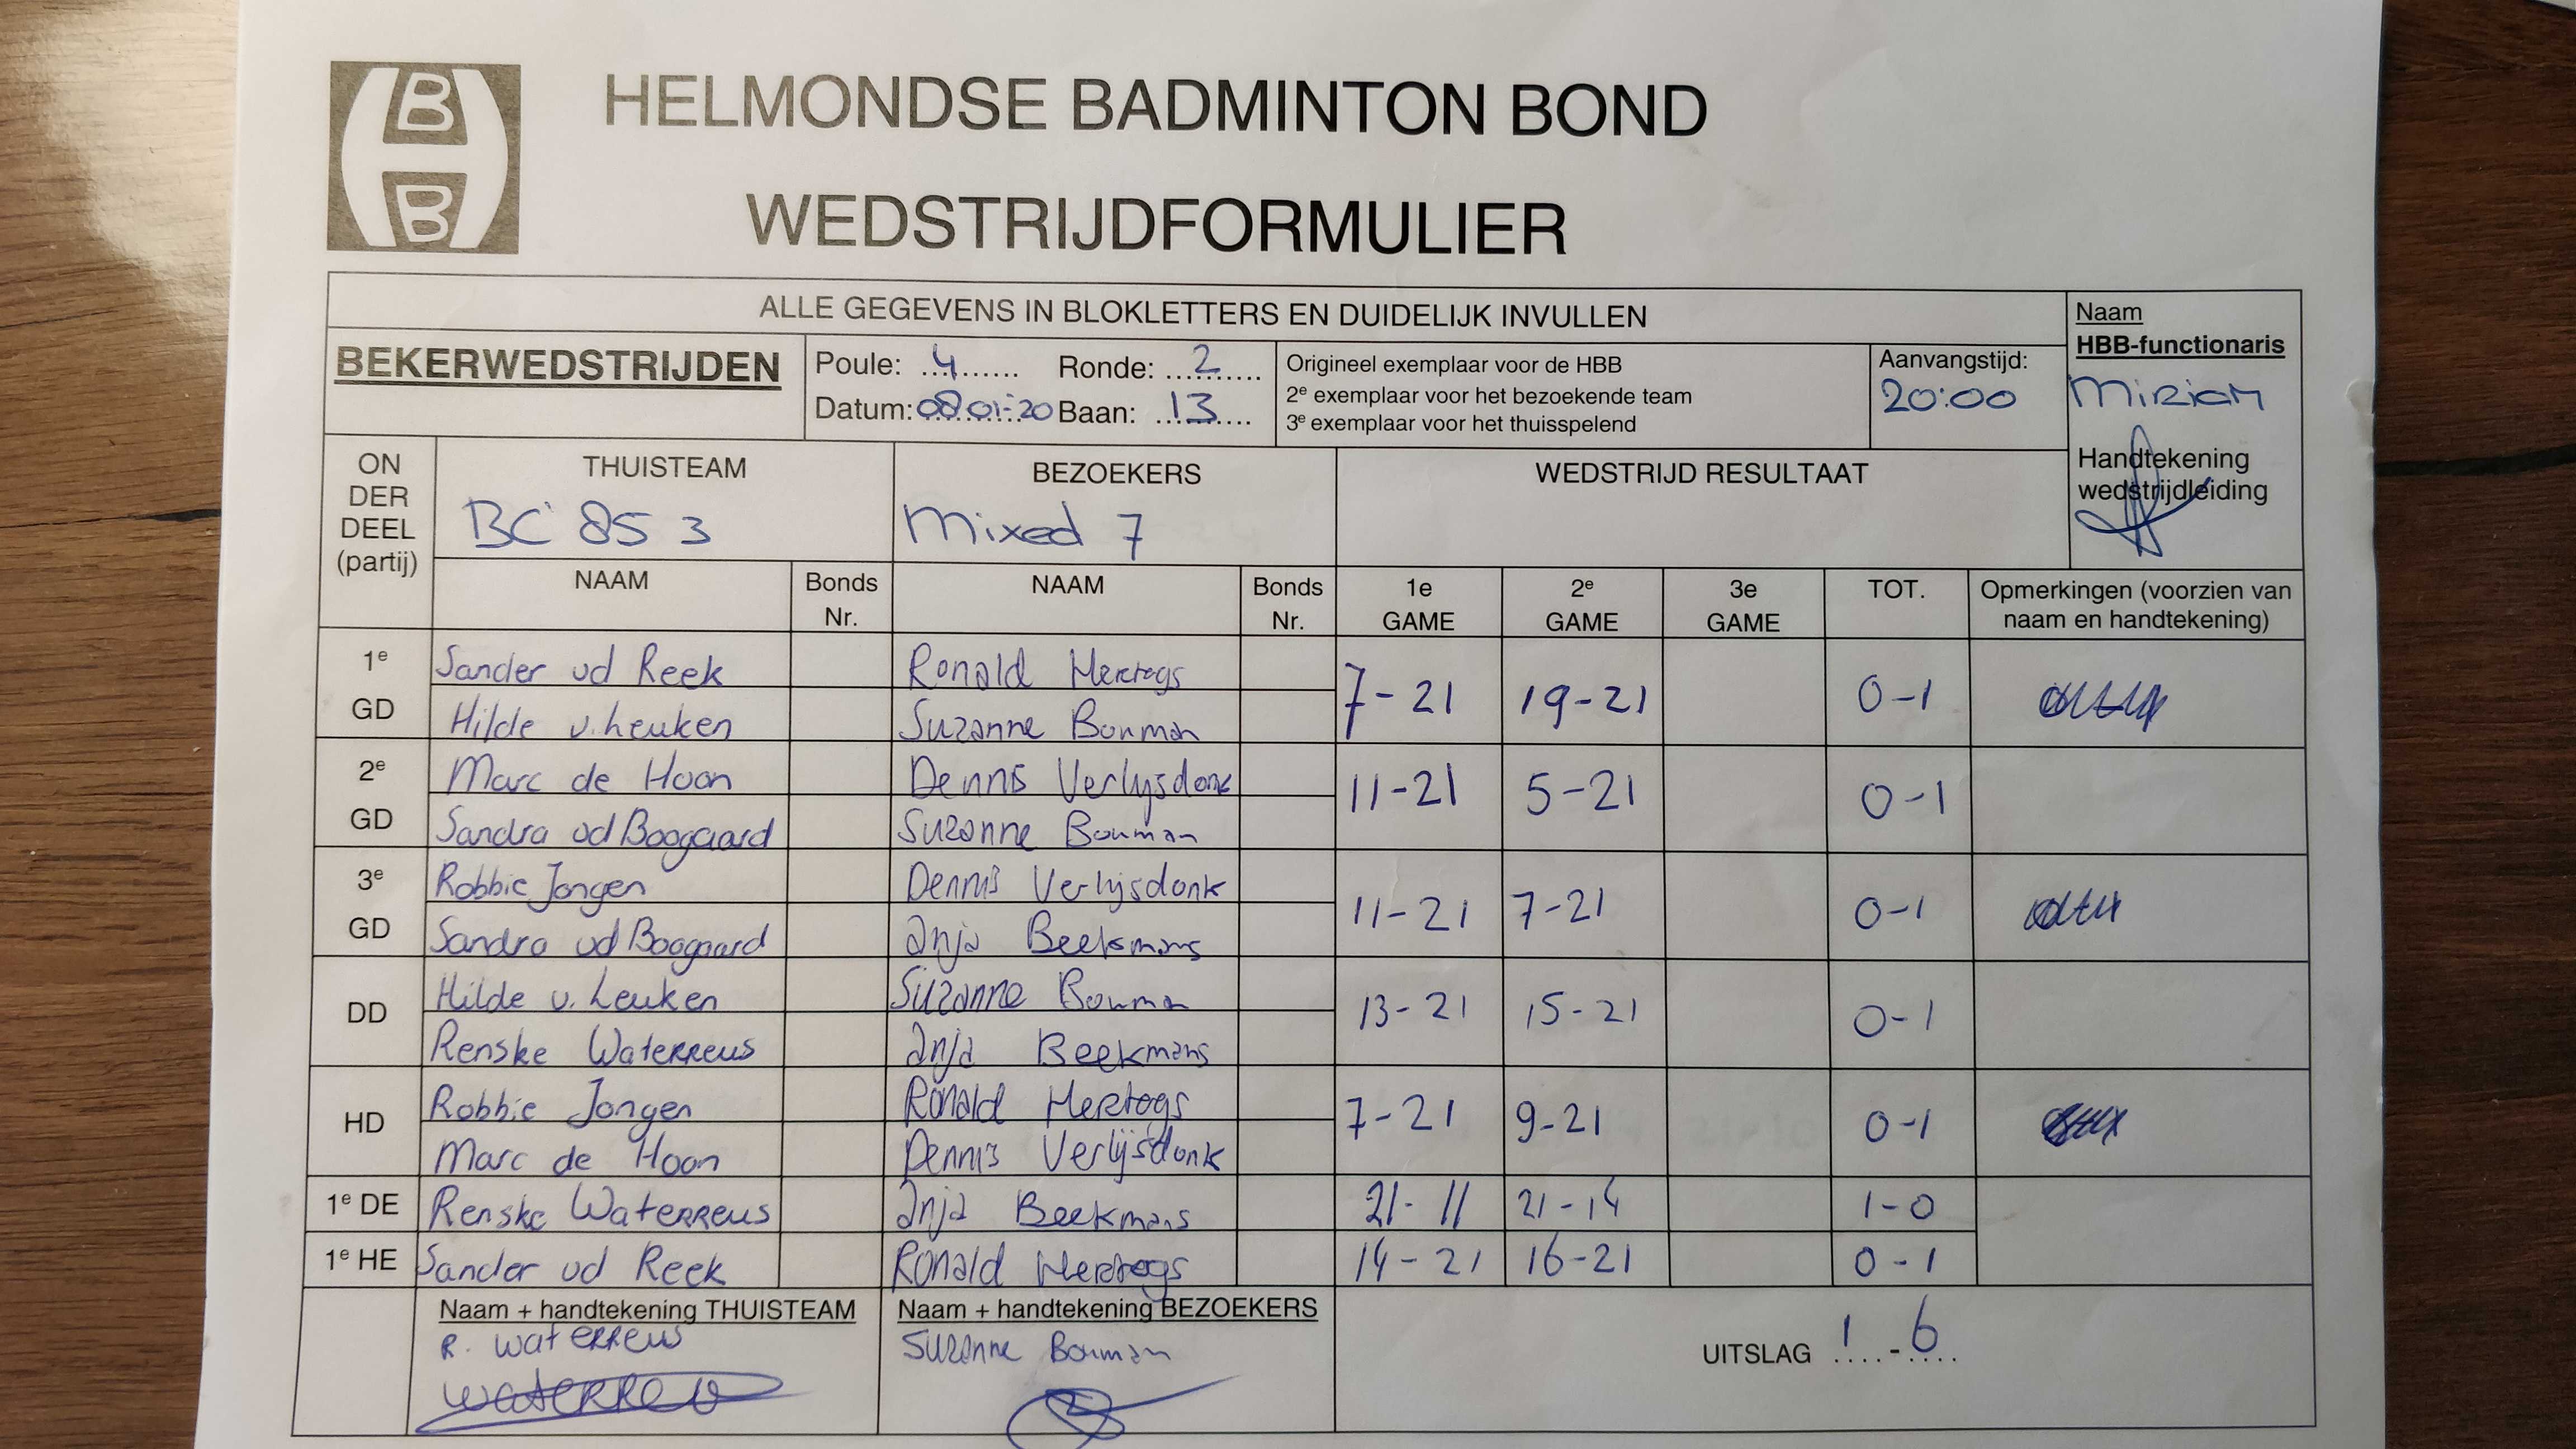 HBB
HELMONDSE BADMINTON BOND
WEDSTRIJDFORMULIER
ALLE GEGEVENS IN BLOKLETTERS EN DUIDELIJK INVULLEN
Naam
HBB-functionaris
Miriam
Handtekening
wedstrijdleiding
BEKERWEDSTRIJDEN
Poule: 4 Ronde: 2
Datum: 08.01-20 Baan: 13
Origineel exemplaar voor de HBB
2e exemplaar voor het bezoekende team
3e exemplaar voor het thuisspelend
Aanvangstijd:
20:00
ON
DER
DEEL
(partij)
THUISTEAM
BC 85 3
BEZOEKERS
Mixed 7
WEDSTRIJD RESULTAAT
NAAM Bonds Nr. NAAM Bonds Nr. 1e GAME 2e GAME 3e GAME TOT. Opmerkingen (voorzien van
naam en handtekening)
1e GD
Sander vd Reek Ronald Hertogs
Hilde v. Leuken Suzanne Bouman
7-21 19-21 0-1
2e GD
Marc de Hoon Dennis Verlijsdonk
Sandra vd Boogaard Suzanne Bouman
11-21 5-21 0-1
3e GD
Robbie Jongen Dennis Verlijsdonk
Sandra vd Boogaard Anja Beekmans
11-21 7-21 0-1
DD
Hilde v. Leuken Suzanne Bouman
Renske Waterreus Anja Beekmans
13-21 15-21 0-1
HD
Robbie Jongen Ronald Hertogs
Marc de Hoon Dennis Verlijsdonk
7-21 9-21 0-1
1e DE Renske Waterreus Anja Beekmans 21-11 21-14 1-0
1e HE Sander vd Reek Ronald Hertogs 14-21 16-21 0-1
Naam + handtekening THUISTEAM
R. Waterreus
Naam + handtekening BEZOEKERS
Suzanne Bouman
UITSLAG 1 - 6